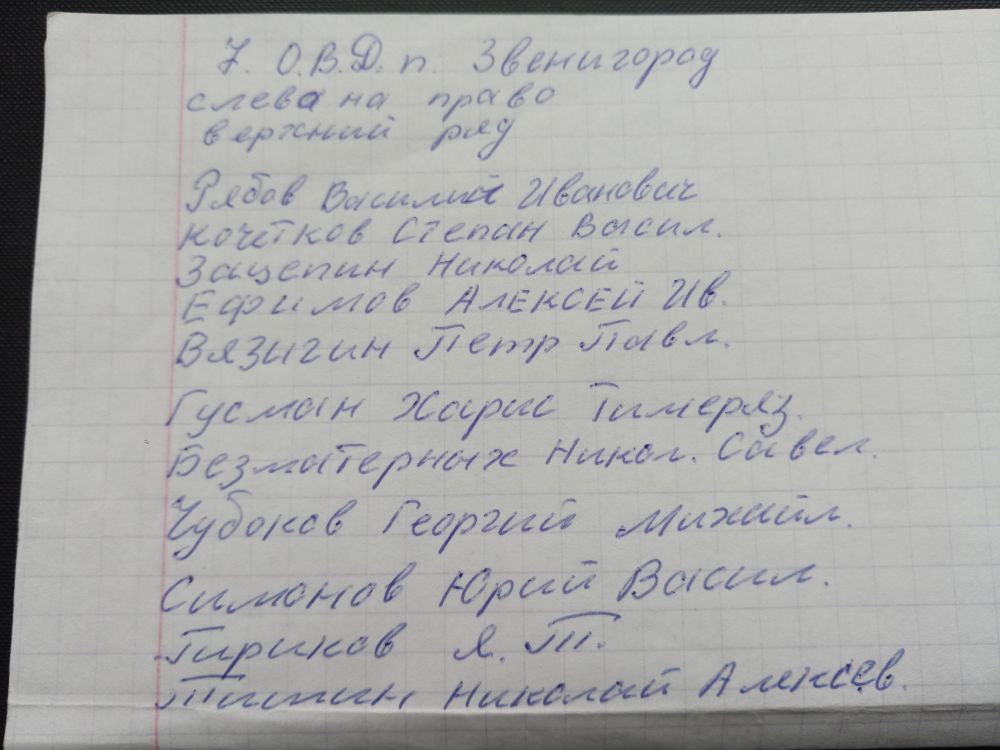 7. О.В.Д. п. Звенигород
слева на право
верхний ряд
Рябов Василий Иванович
Кочетков Степан Васил.
Зацепин Николай
Ефимов АЛЕКСЕЙ Ив.
Вязигин Петр Павл.
Гусман Харис Тимеряз.
Безматерных Никол. Савел.
Чубоков Георгий Михайл.
Симонов Юрий Васил.
Гириков Я. Т.
Николай Алексеев.